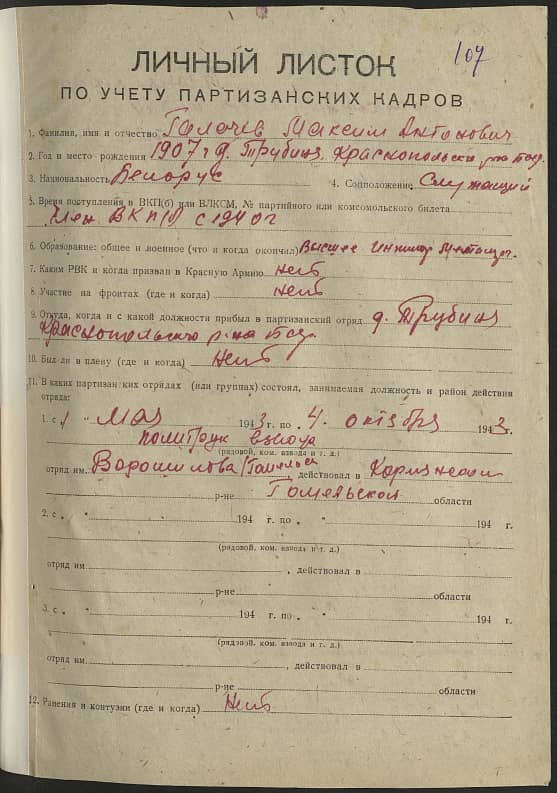 107
ЛИЧНЫЙ ЛИСТОК
ПО УЧЕТУ ПАРТИЗАНСКИХ КАДРОВ
1. Фамилия, имя и отчество Галачев Максим Антонович
2. Год и место рождения 1907 г д. Трубиня Краснопольский р-на
3. Национальность Белорус 4. Соцположение Служащий
5. Время поступления в ВКП(б) или ВЛКСМ, № партийного или комсомольского билета
Член ВКП(б) с 1940 г
6. Образование: общее и военное (что и когда окончил) Высшее Инженер
7. Каким РВК и когда призван в Красную Армию нет
8. Участие на фронтах (где и когда) нет
9. Откуда, когда и с какой должности прибыл в партизанский отряд д. Трубиня
Краснопольского р-на
10. Был ли в плену (где и когда) Нет
11. В каких партизанских отрядах (или группах) состоял, занимаемая должность и район действия
отряда:
1. с 1 " мая 1943 г. по " 4. октября 1943 г.
политрук взвода
(рядовой, ком. взвода и т. д.)
отряд им. Ворошилова действовал в
р-не Гомельской области
2. с " 194 г. по " 194 г.
(рядовой, ком. взвода и т. д.)
отряд им. , действовал в
р-не области
3. с " 194 г. по " 194 г.
(рядовой, ком. взвода и т. д.)
отряд им. , действовал в
р-не области
12. Ранения и контузии (где и когда) Нет